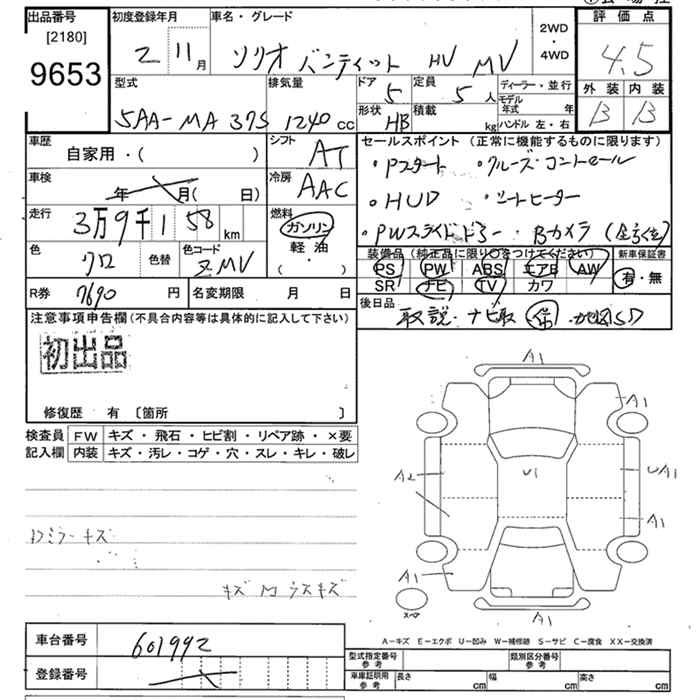 出品番号
[2180]
9653
初度登録年月
2 11月
車名・グレード
ソリオ バンディット HV MV
2WD
・
4WD
評価点
4.5
外装 内装
B B
型式
5AA-MA37S
排気量
1240 cc
ドア
5
定員
5人
形状
HB
積載
kg
ディーラー・並行
モデル年式 年
ハンドル 左・右
車歴
自家用・( )
シフト
AT
車検
年 月( 日)
冷房
AAC
走行
3万9千158km
燃料
ガソリン
軽油
( ・ )
色
クロ
色替
色コード
ZMV
R券
7690円
名変期限 月 日
セールスポイント (正常に機能するものに限ります)
・Pスタート ・クルーズ・コントロール
・HUD ・シートヒーター
・PWスライドドア ・Bカメラ
装備品 (純正品に限り○をつけてください)
新車保証書
PS PW ABS エアB AW
SR ナビ TV カワ
有・無
後日品
取説・ナビ取 保 ・地図SD
注意事項申告欄(不具合内容等は具体的に記入して下さい)
初出品
修復歴 有 〔箇所 〕
検査員記入欄
FW キズ・飛石・ヒビ割・リペア跡・×要
内装 キズ・汚レ・コゲ・穴・スレ・キレ・破レ
ミラーキズ
キズ
A1
A1
A2
U1
UA1
A1
A1
スペア
A1
A−キズ E−エクボ U−凹み W−補修跡 S−サビ C−腐食 XX−交換済
車台番号
601992
登録番号
型式指定番号
参考
類別区分番号
参考
車庫証明用
参考
長さ cm
幅 cm
高さ cm